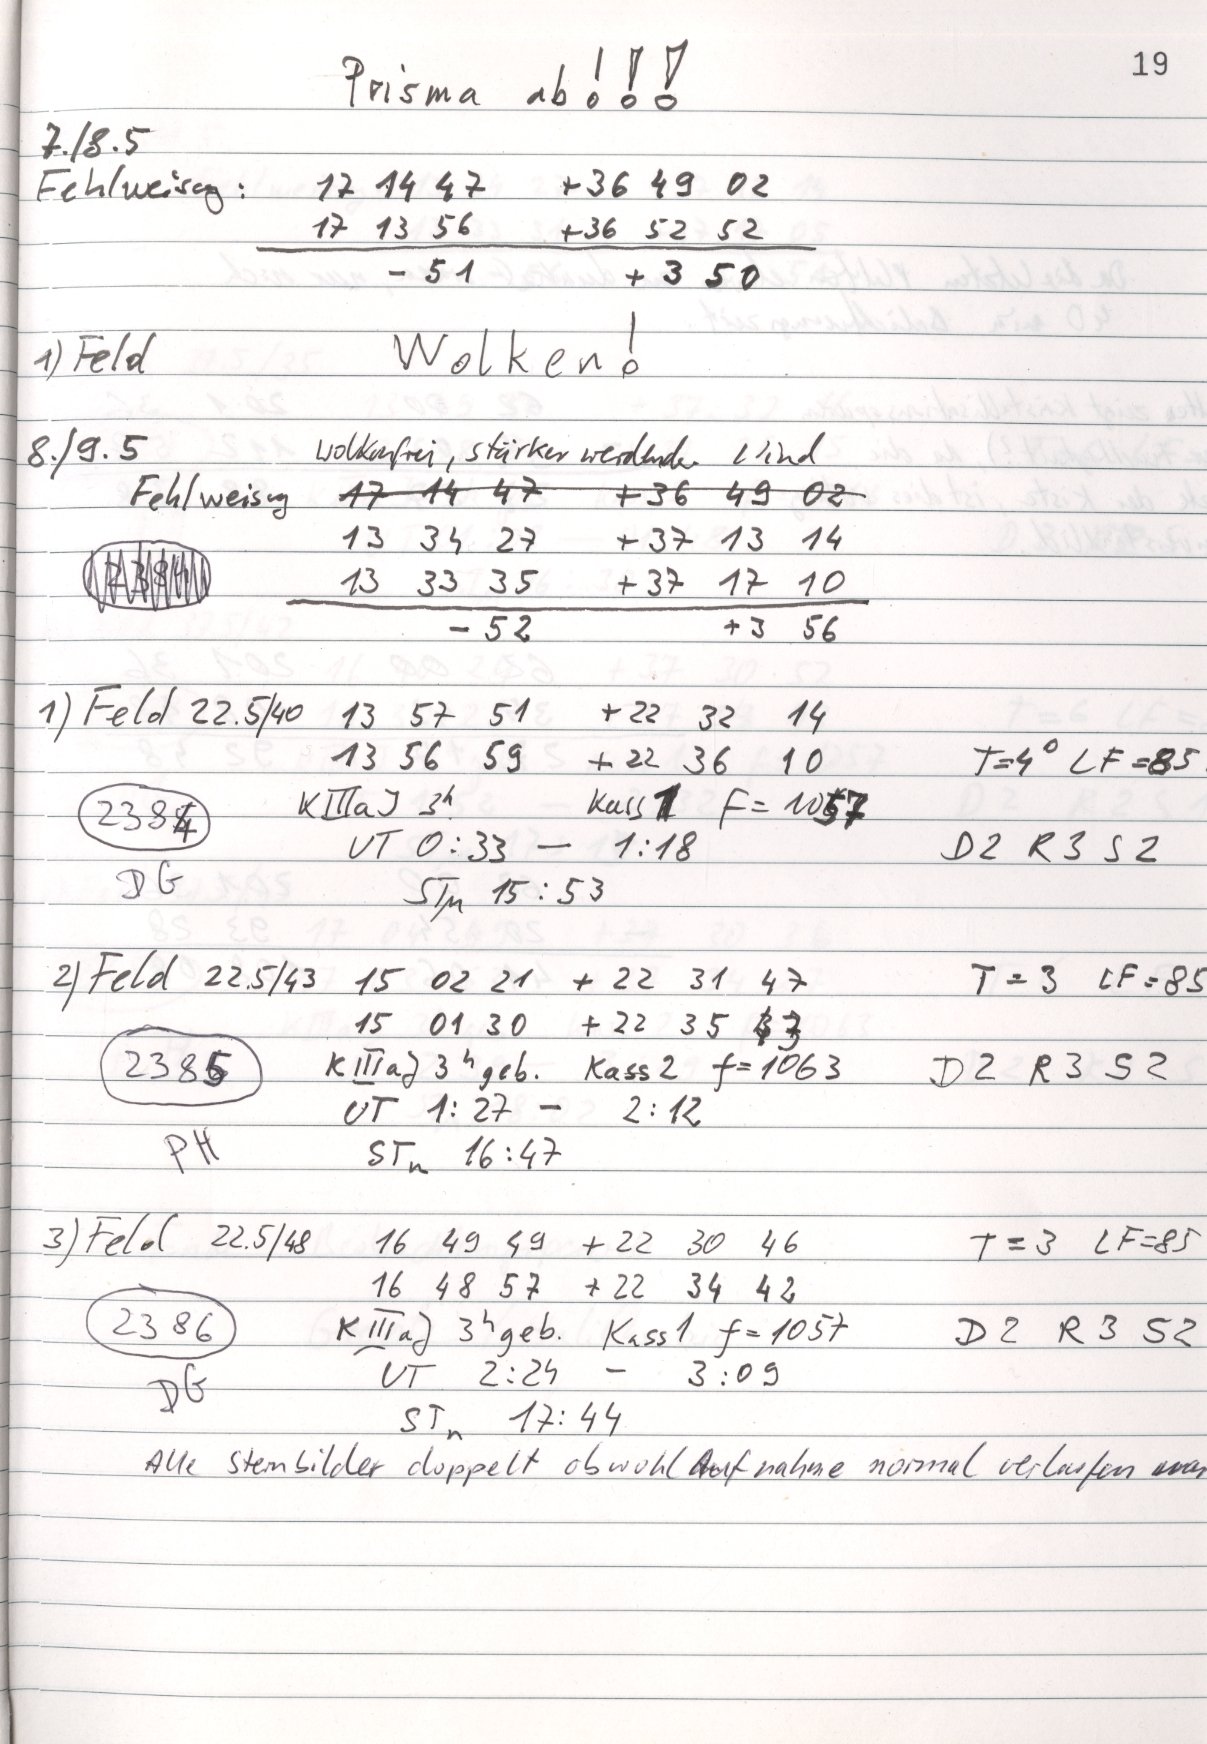 19
Prisma ab!!!
7./8.5
Fehlweisg: 17 14 47 +36 49 02
17 13 56 +36 52 52
-51 +3 50
1) Feld Wolken!
8./9.5 wolkenfrei, stärker werdender Wind
Fehlweisg 17 14 47 +36 49 02
13 34 27 +37 13 14
13 33 35 +37 17 10
-52 +3 56
1) Feld 22.5/40 13 57 51 +22 32 14
13 56 59 +22 36 10 T=4° LF=85
2384 KIIIaJ 3h Kass 1 F=1057
UT 0:33 - 1:18 D2 R3 S2
DG STn 15:53
2) Feld 22.5/43 15 02 21 +22 31 47 T=3 LF=85
15 01 30 +22 35 43
2385 KIIIaJ 3h geb. Kass 2 f=1063 D2 R3 S2
UT 1:27 - 2:12
PH STn 16:47
3) Feld 22.5/48 16 49 49 +22 30 46 T=3 LF=85
16 48 57 +22 34 42
2386 KIIIaJ 3h geb. Kass 1 f=1057 D2 R3 S2
UT 2:24 - 3:09
DG STn 17:44
Alle Sternbilder doppelt obwohl Aufnahme normal verlaufen war